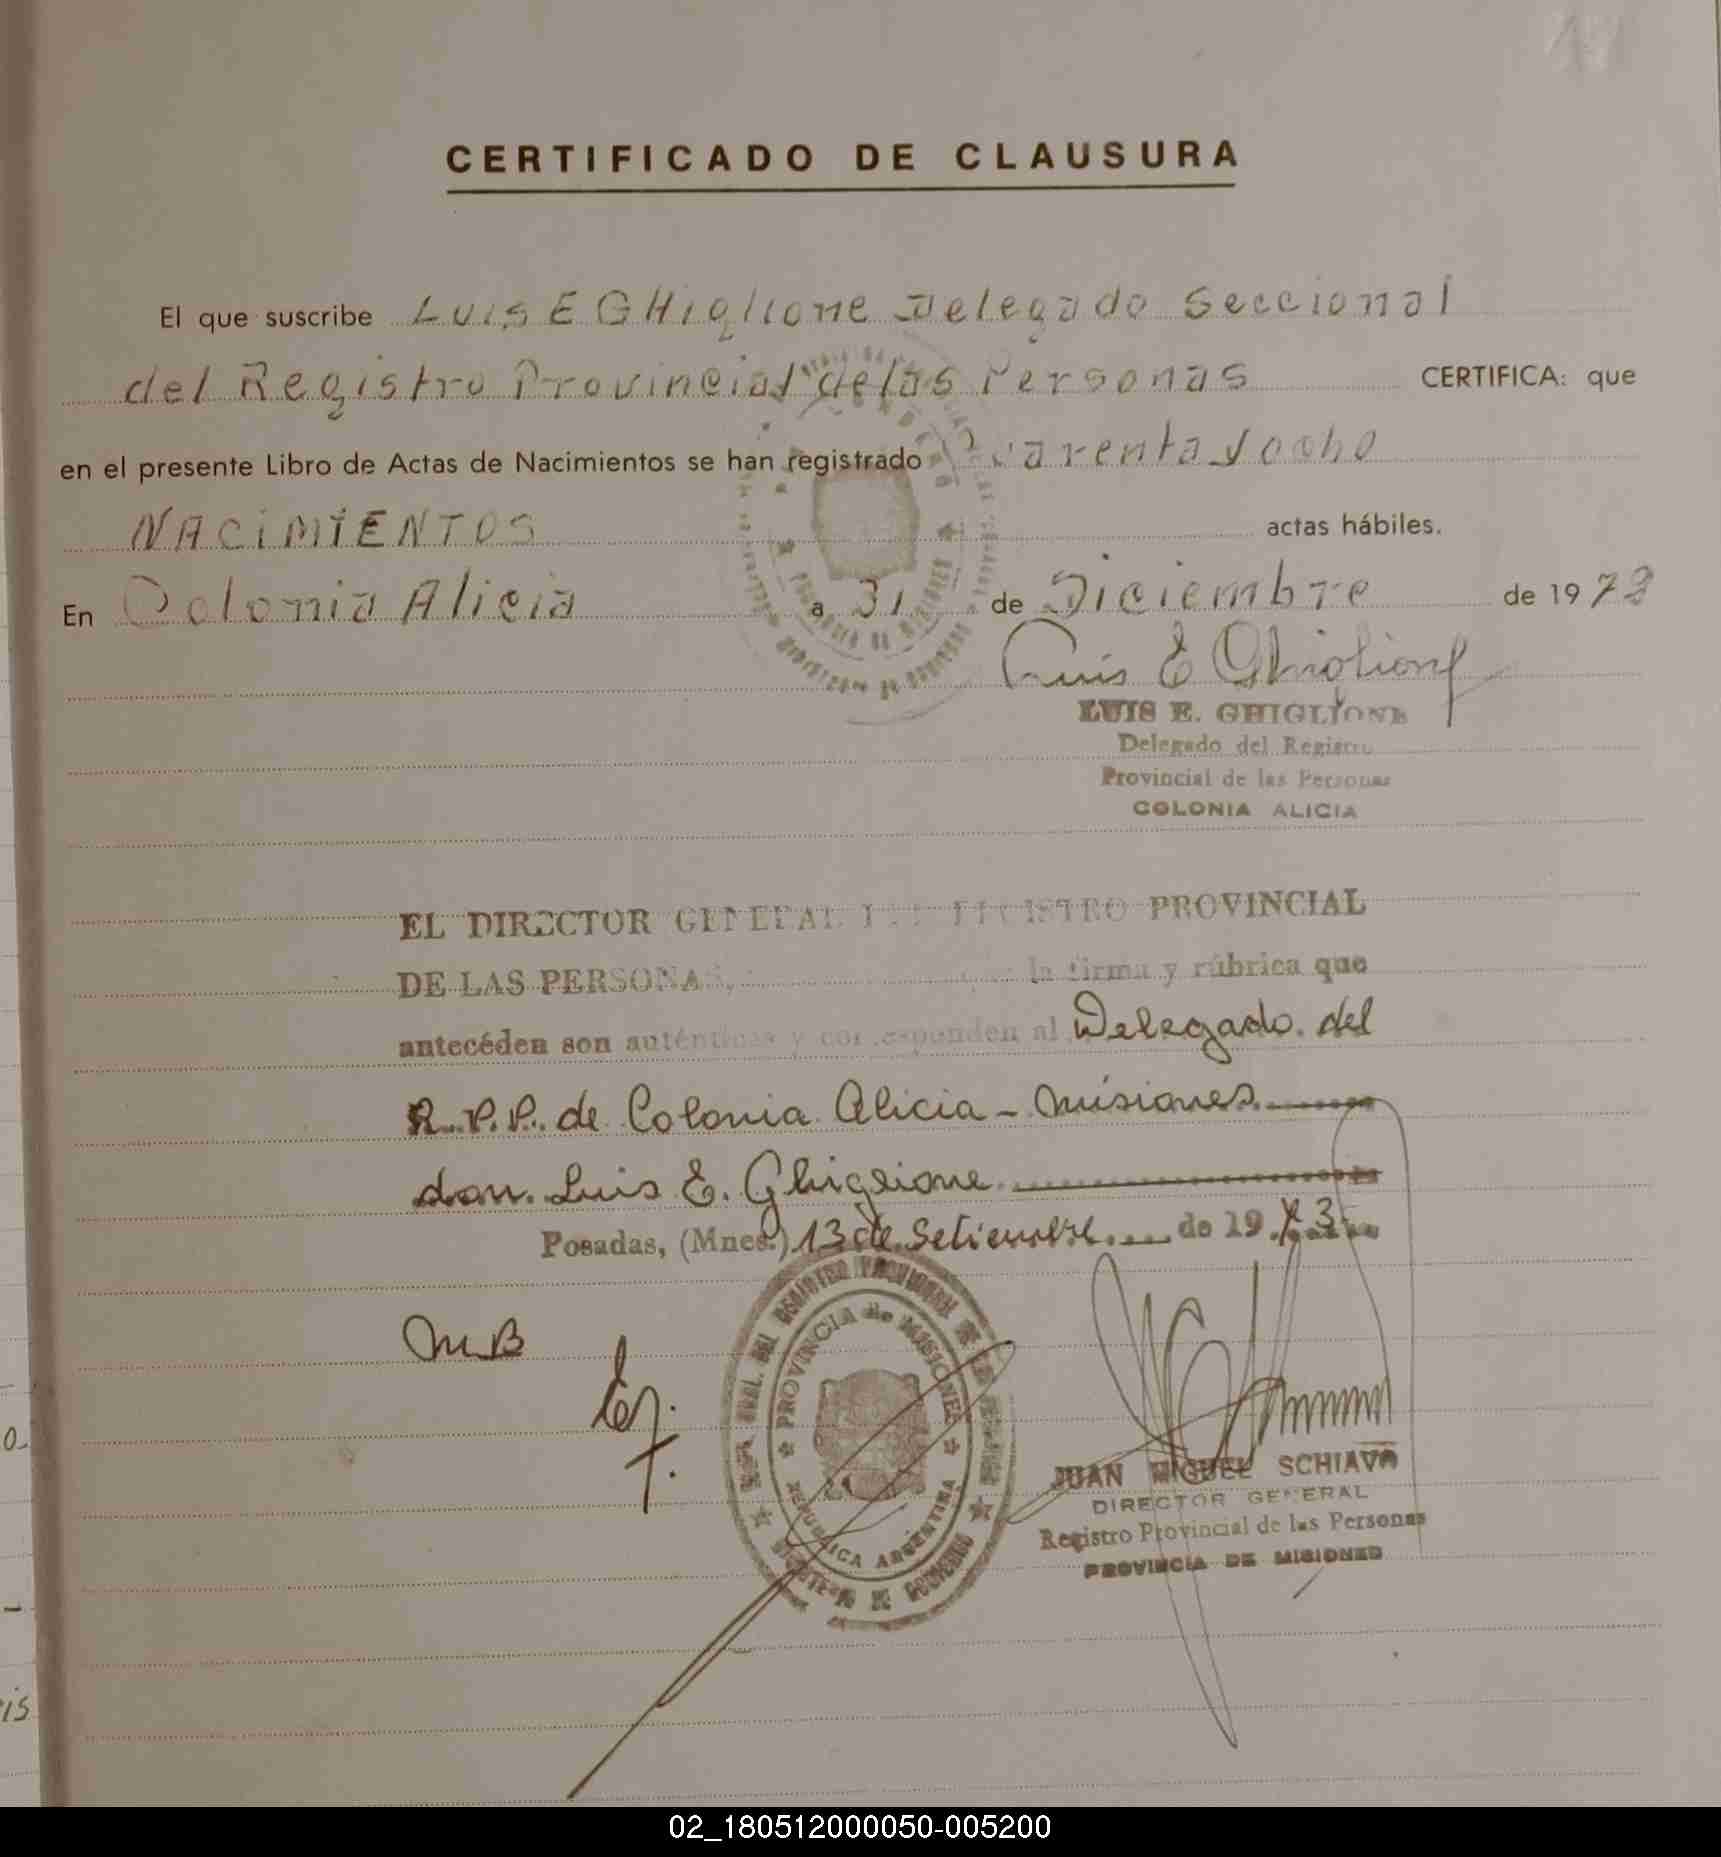 CERTIFICADO DE CLAUSURA
El que suscribe Luis E GHiglione Delegado Seccional
del Registro Provincial de las Personas CERTIFICA: que
en el presente Libro de Actas de Nacimientos se han registrado cuarenta y ocho
NACIMIENTOS actas hábiles.
En Colonia Alicia a 31 de Diciembre de 197
Luis E Ghiglione
LUIS E. GHIGLIONE
Delegado del Registro
Provincial de las Personas
COLONIA ALICIA
EL DIRECTOR GENERAL DEL REGISTRO PROVINCIAL
DE LAS PERSONAS, la firma y rúbrica que
antecéden son auténticas y corresponden al Delegado del
R.P.P. de Colonia Alicia - Misiones
don Luis E. Ghiglione
Posadas, (Mnes.) 13 de Setiembre de 1973
MB
PROVINCIA de MISIONES
REPUBLICA ARGENTINA
MINISTERIO DE GOBIERNO
JUAN MIGUEL SCHIAVO
DIRECTOR GENERAL
Registro Provincial de las Personas
PROVINCIA DE MISIONES
02_180512000050-005200